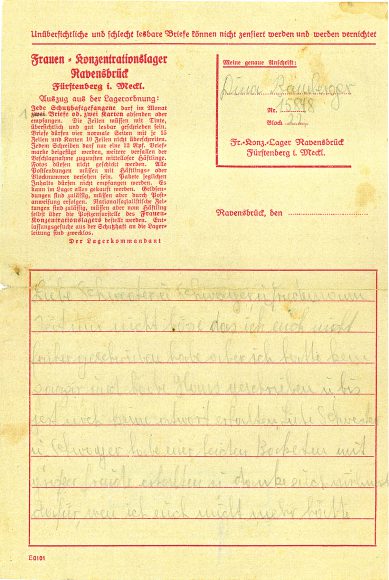 Unübersichtliche und schlecht lesbare Briefe können nicht zensiert werden und werden vernichtet
Frauen - Konzentrationslager
Ravensbrück
Fürstenberg i. Meckl.
Auszug aus der Lagerordnung:
Jede Schutzhaftgefangene darf im Monat
zwei Briefe od. zwei Karten absenden oder
empfangen. Die Zeilen müssen mit Tinte,
übersichtlich und gut lesbar geschrieben sein.
Briefe dürfen vier normale Seiten mit je 15
Zeilen und Karten 10 Zeilen nicht überschreiten.
Jedem Schreiben darf nur eine 12 Rpf. Brief-
marke beigefügt werden, weitere verfallen der
Beschlagnahme zugunsten mittelloser Häftlinge.
Fotos dürfen nicht geschickt werden. Alle
Postsendungen müssen mit Häftlings- oder
Blocknummer versehen sein. Pakete jeglichen
Inhalts dürfen nicht empfangen werden. Es
kann im Lager alles gekauft werden. Geldsen-
dungen sind zulässig, müssen aber durch Post-
anweisung erfolgen. Nationalsozialistische Zei-
tungen sind zulässig, müssen aber vom Häftling
selbst über die Postzensurstelle des Frauen-
Konzentrationslagers bestellt werden. Ent-
lassungsgesuche aus der Schutzhaft an die Lager-
leitung sind zwecklos.
Der Lagerkommandant
Meine genaue Anschrift:
Bamberger
Nr.
Block
Fr.-Konz.-Lager Ravensbrück
Fürstenberg i. Meckl.
Ravensbrück, den
Liebe Schwester u Schwager u
mir nicht böse das ich euch nicht
früher geschrieben habe aber ich hatte kein
geschrieben u bis
jetzt noch keine antwort erhalten Liebe Schwester
u Schwager habe mit
großer freude erhalten u danke euch
dafür, wen ich euch nicht mehr hätte
E0101